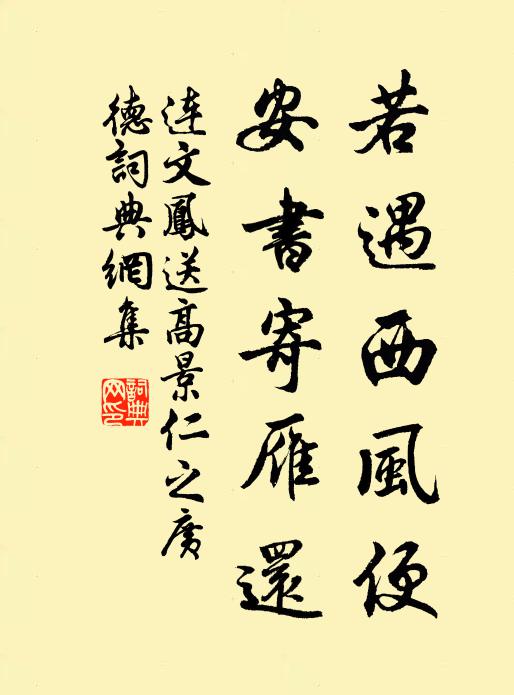 若遇西風便
安書寄雁還
連文鳳送高景仁之廣
德詞典網集
詞典
网印